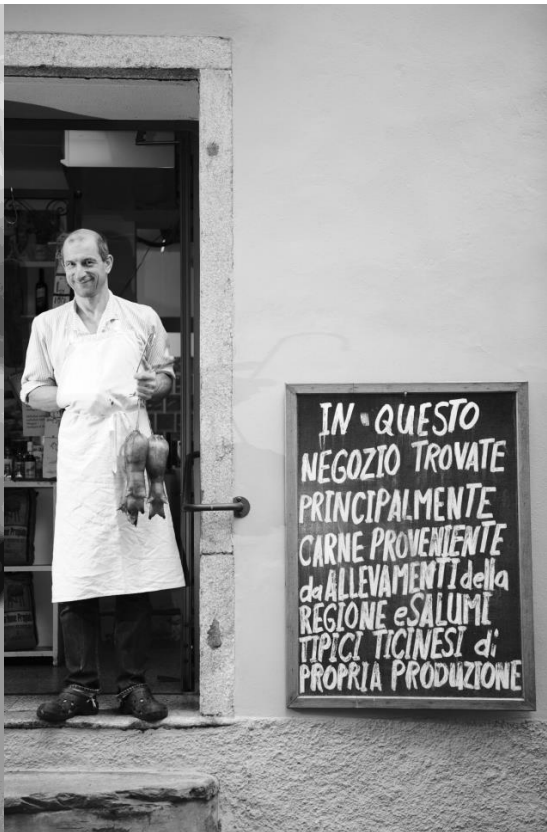 IN QUESTO
NEGOZIO TROVATE
PRINCIPALMENTE
CARNE PROVENIENTE
da ALLEVAMENTI della
REGIONE e SALUMI
TIPICI TICINESI di
PROPRIA PRODUZIONE